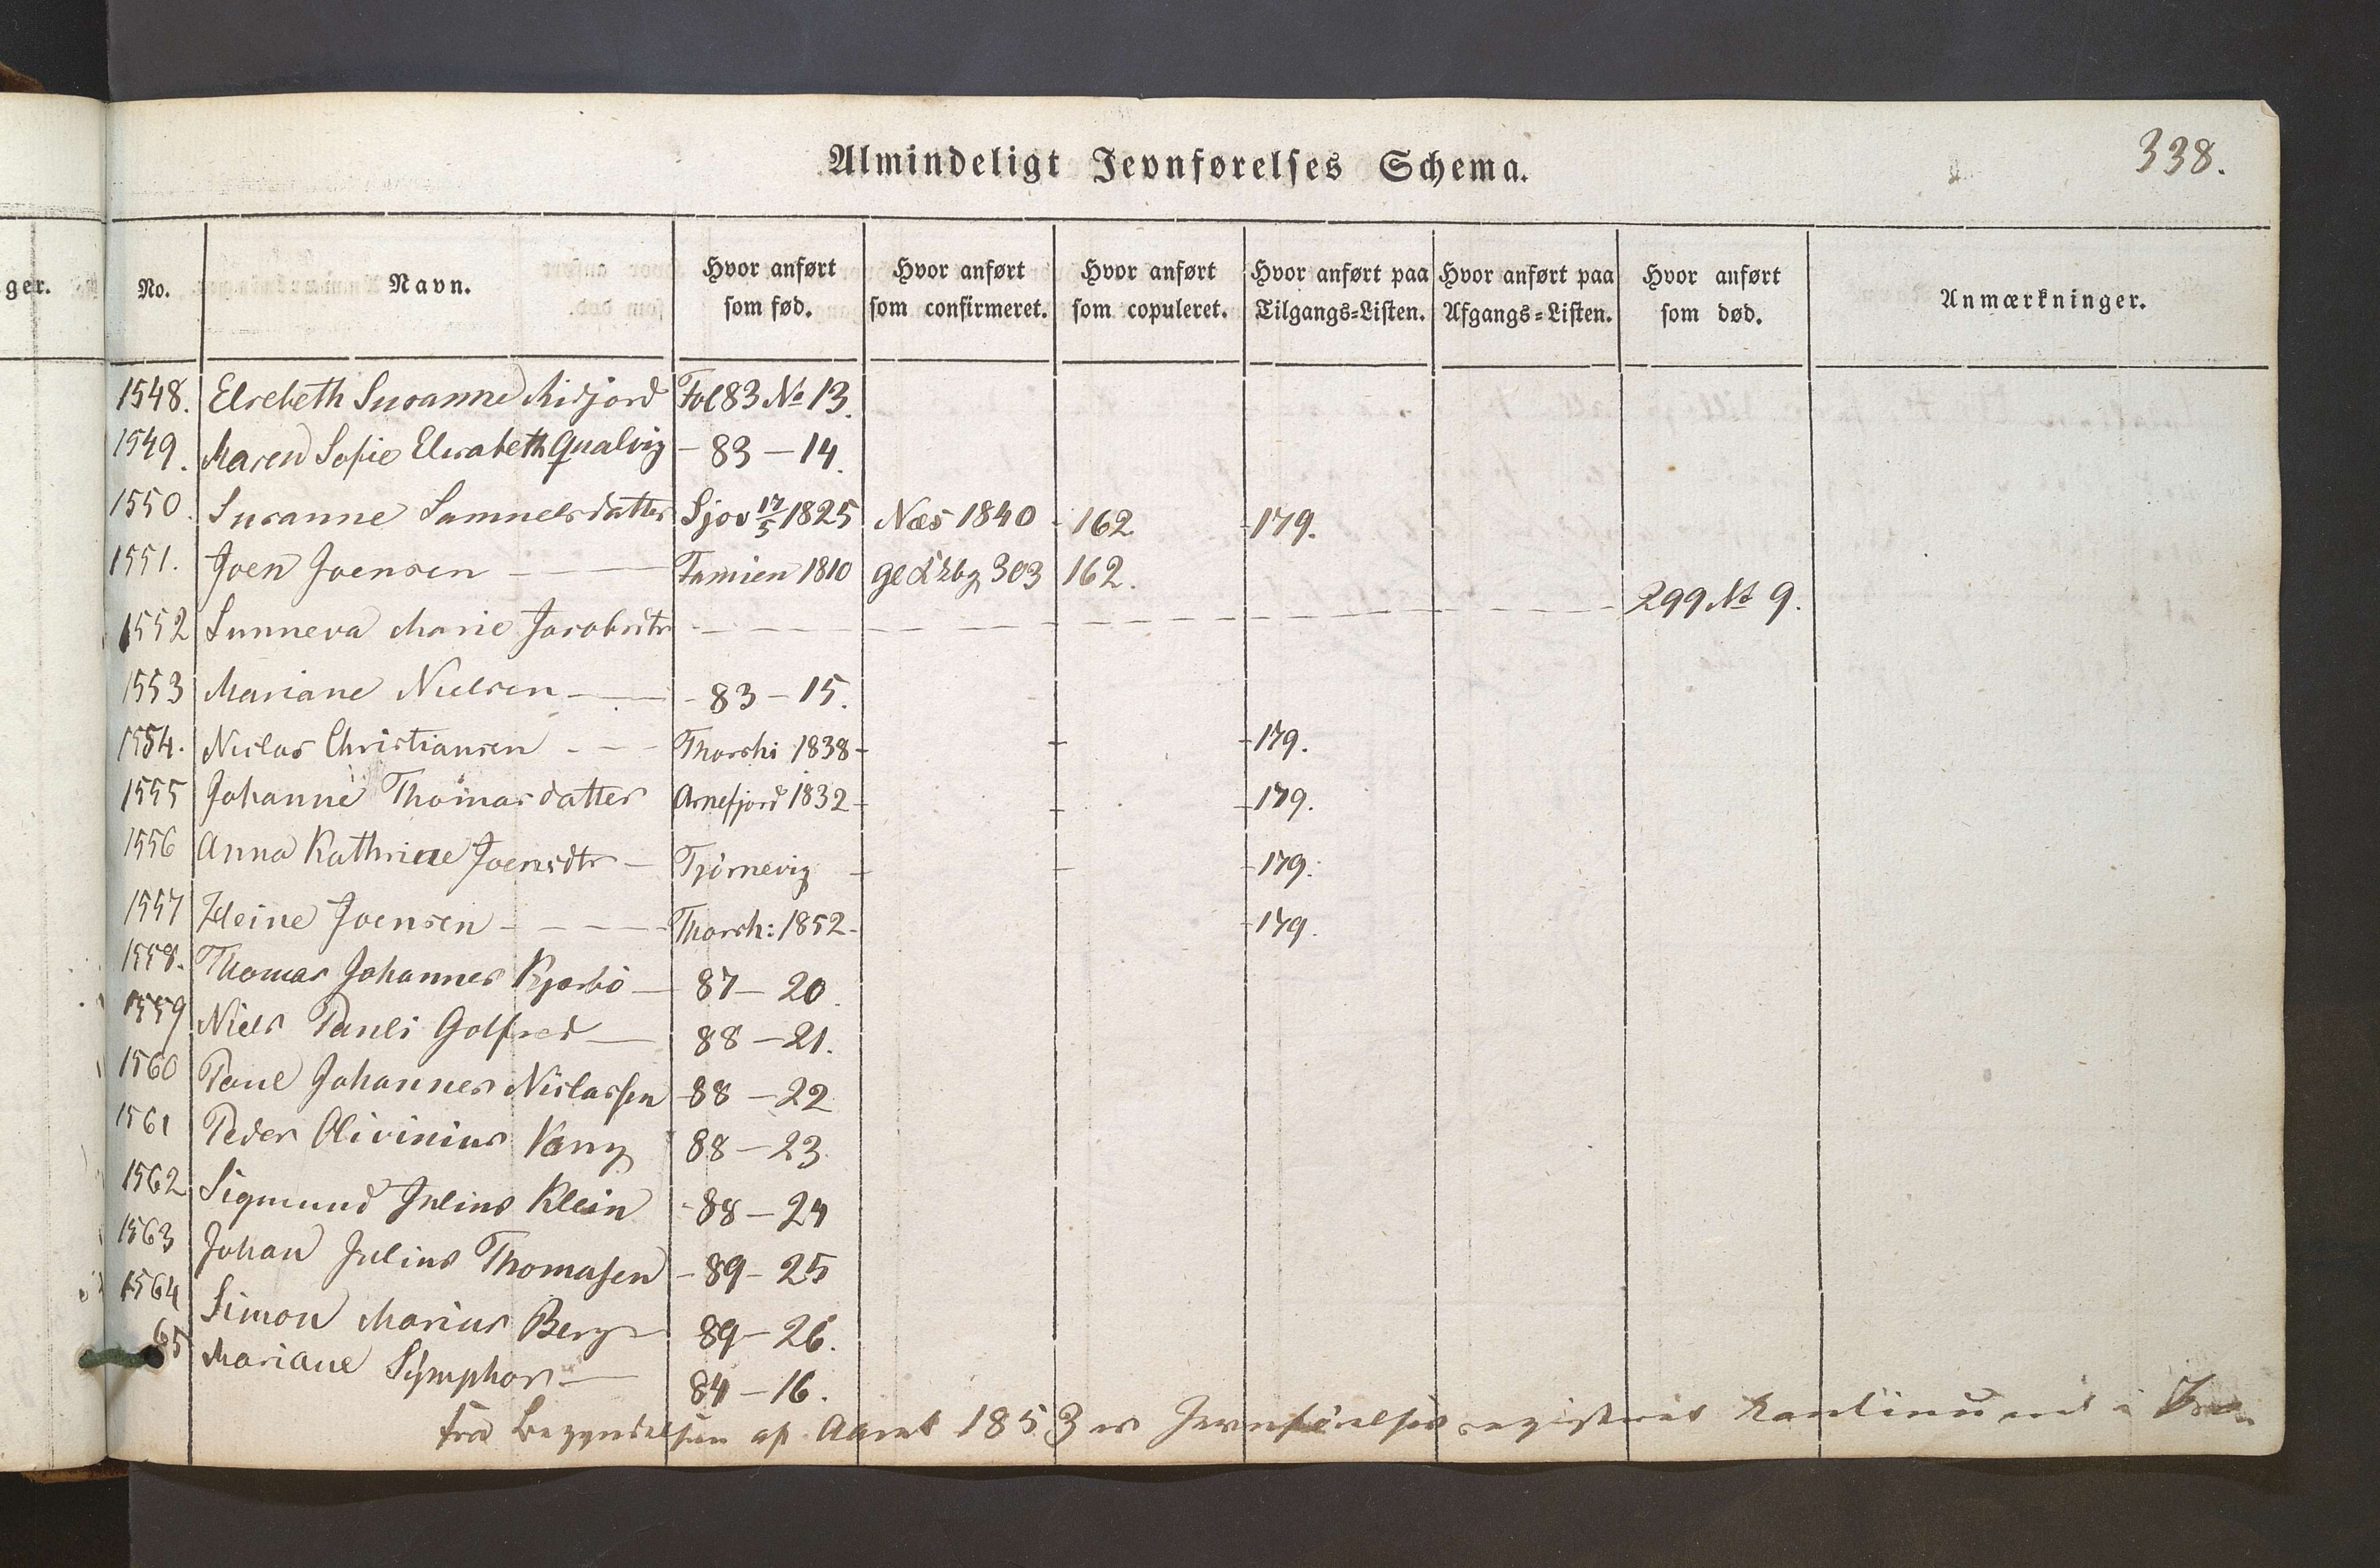 ger.
Almindeligt Jevnførelses Schema.
338.
No. Navn. Hvor anført som fød. Hvor anført som confirmeret. Hvor anført som copuleret. Hvor anført paa Tilgangs=Listen. Hvor anført paa Afgangs=Listen. Hvor anført som død. Anmærkninger.
1548. Elsebeth Susanne Midjord Fol 83 No 13.
1549. Maren Sofie Elisabeth Qualvig - 83 - 14.
1550. Susanne Samuelsdatter Sjov 17/5 1825 Næs 1840 - 162 - 179.
1551. Joen Joensen Famien 1810 303 162.
1552 Sunneva Marie Jacobsdtr 299 No 9.
1553 Mariane Nielsen - 83 - 15.
1554. Niclas Christiansen Thorsh: 1838 - 179.
1555 Johanne Thomasdatter Arnefjord 1832 - 179.
1556 Anna Kathrine Joensdtr Tjørnevig - 179.
1557 Heine Joensen Thorsh: 1852 - 179.
1558. Thomas Johannes Kjærbo 87 - 20.
1559 Niels Pauli Golfred 88 - 21.
1560 Poul Johannes Niclassen 88 - 22
1561 Peder Olivinius Vang 88 - 23.
1562 Sigmund Julius Klein - 88 - 24
1563 Johan Julius Thomasen - 89 - 25
1564 Simon Marius Berg 89 - 26.
65 Mariane Symphor 84 - 16.
fra Begyndelsen af Aaret 1853 er Jevnførelsesregisteret kontinueret i